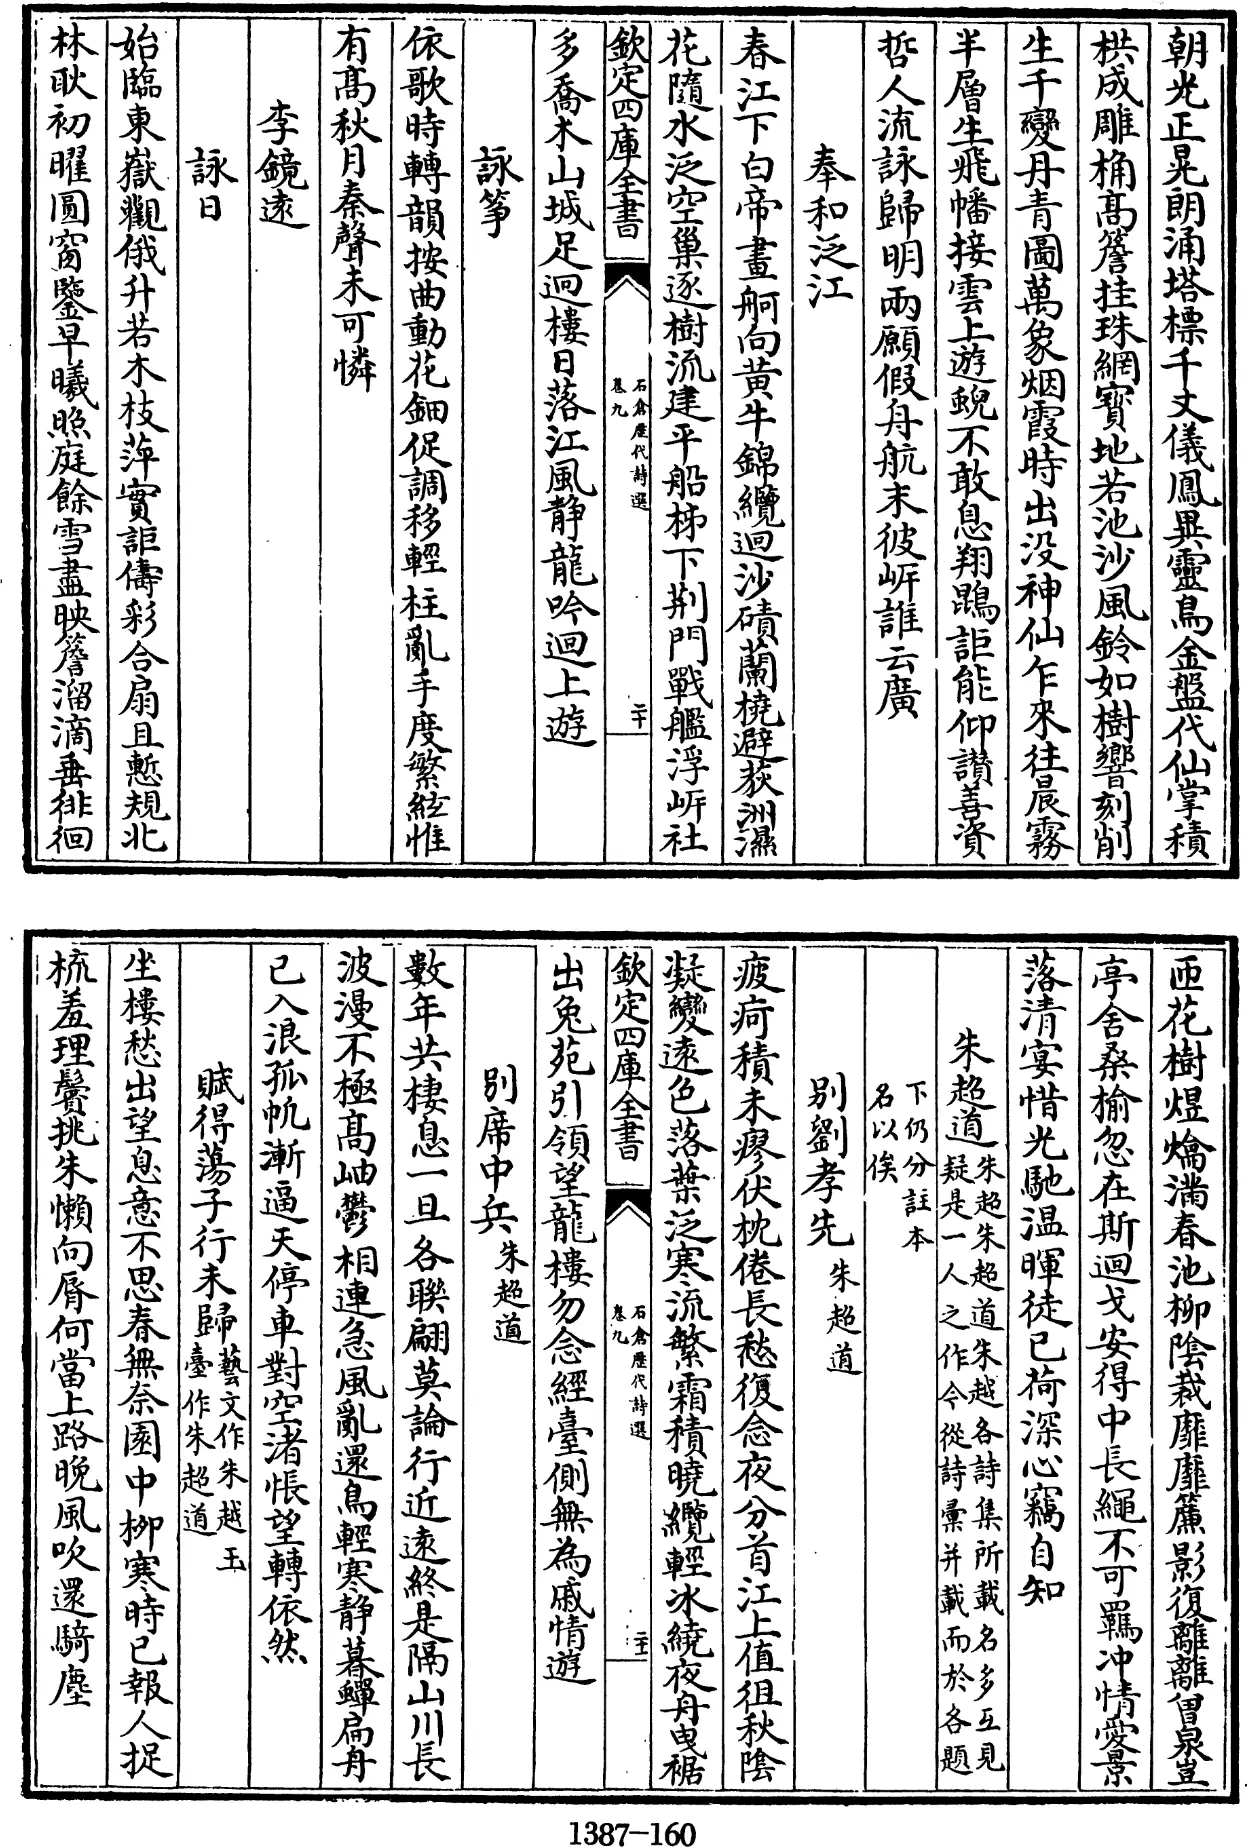 朝光正晃朗涌塔標千丈儀鳳異靈烏金盤代仙掌積
栱成雕桷高簷挂珠網寳地若池沙風鈴如樹響刻削
生千變丹青圖萬象烟霞時出没神仙乍來往晨霧
半層生飛幡接雲上遊蜺不敢息翔鵾詎能仰讃善資
哲人流詠歸明兩願假舟航末彼岍誰云廣
奉和泛江
春江下白帝畫舸向黄牛錦纜迴沙磧蘭橈避荻洲濕
花隨水泛空巢逐樹流建平船柹下荆門戰艦浮岍社
欽定四庫全書
石倉歷代詩選
卷九
二十
多喬木山城足迴樓日落江風静龍吟迴上遊
詠筝
依歌時轉韻按曲動花鈿促調移輕柱亂手度繁絃惟
有髙秋月秦聲未可憐
李鏡逺
詠日
始臨東嶽觀俄升若木枝萍實詎儔彩合扇且慙規北
林耿初曜圓窗鑒早曦照庭餘雪盡映簷溜滴垂徘徊
匝花樹煜爚滿春池柳陰裁靡靡簾影復離離曽泉豈
亭舍桑榆忽在斯迴戈安得中長繩不可羈冲情愛景
落清宴惜光馳温暉徒已荷深心竊自知
朱超道朱超朱超道朱越各詩集所載名多互見
疑是一人之作今從詩彚并載而於各題
下仍分註本
名以俟
别劉孝先朱超道
疲疴積未瘳伏枕倦長愁復念夜分首江上值徂秋陰
凝變逺色落葉泛寒流繁霜積曉纜輕冰繞夜舟曳裾
欽定四庫全書
石倉歷代詩選
卷九
二十一
出兔苑引領望龍樓勿念經臺側無為戚情遊
别席中兵朱超道
數年共棲息一旦各聯翩莫論行近逺終是隔山川長
波漫不極髙岫鬱相連急風亂還鳥輕寒静暮蟬扁舟
已入浪孤帆漸逼天停車對空渚悵望轉依然
賦得蕩子行未歸藝文作朱越玉
臺作朱超道
坐樓愁出望息意不思春無奈園中柳寒時已報人捉
梳羞理鬢挑朱懶向脣何當上路晚風吹還騎塵
1387-160